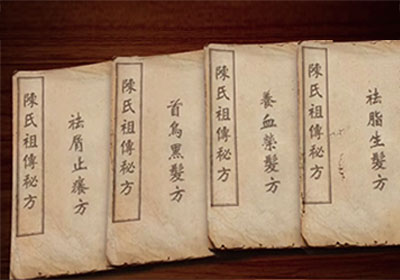 陳氏祖傳秘方
祛屑止癢方
陳氏祖傳秘方
首烏黑髮方
陳氏祖傳秘方
養血縈髮方
陳氏祖傳秘方
祛脂生髮方